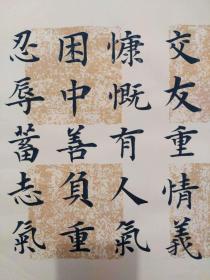 交友重情義
慷慨有人氣
困中善負重
忍辱蓄志氣